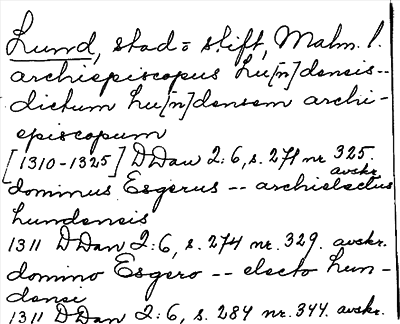 Lund, stad o stift, Malm. l.
archiepiscopus Lu[n]densis--
dictum Lu[n]densem archi-
episcopum
[1310-1325] DDan 2:6, s. 271 nr 325.
avskr.
dominus Esgerus -- archielectus
Lundensis
1311 DDan 2:6, s. 274 nr. 329. avskr.
domino Esgero -- electo Lun-
densi
1311 DDan 2:6, s. 284 nr. 344. avskr.